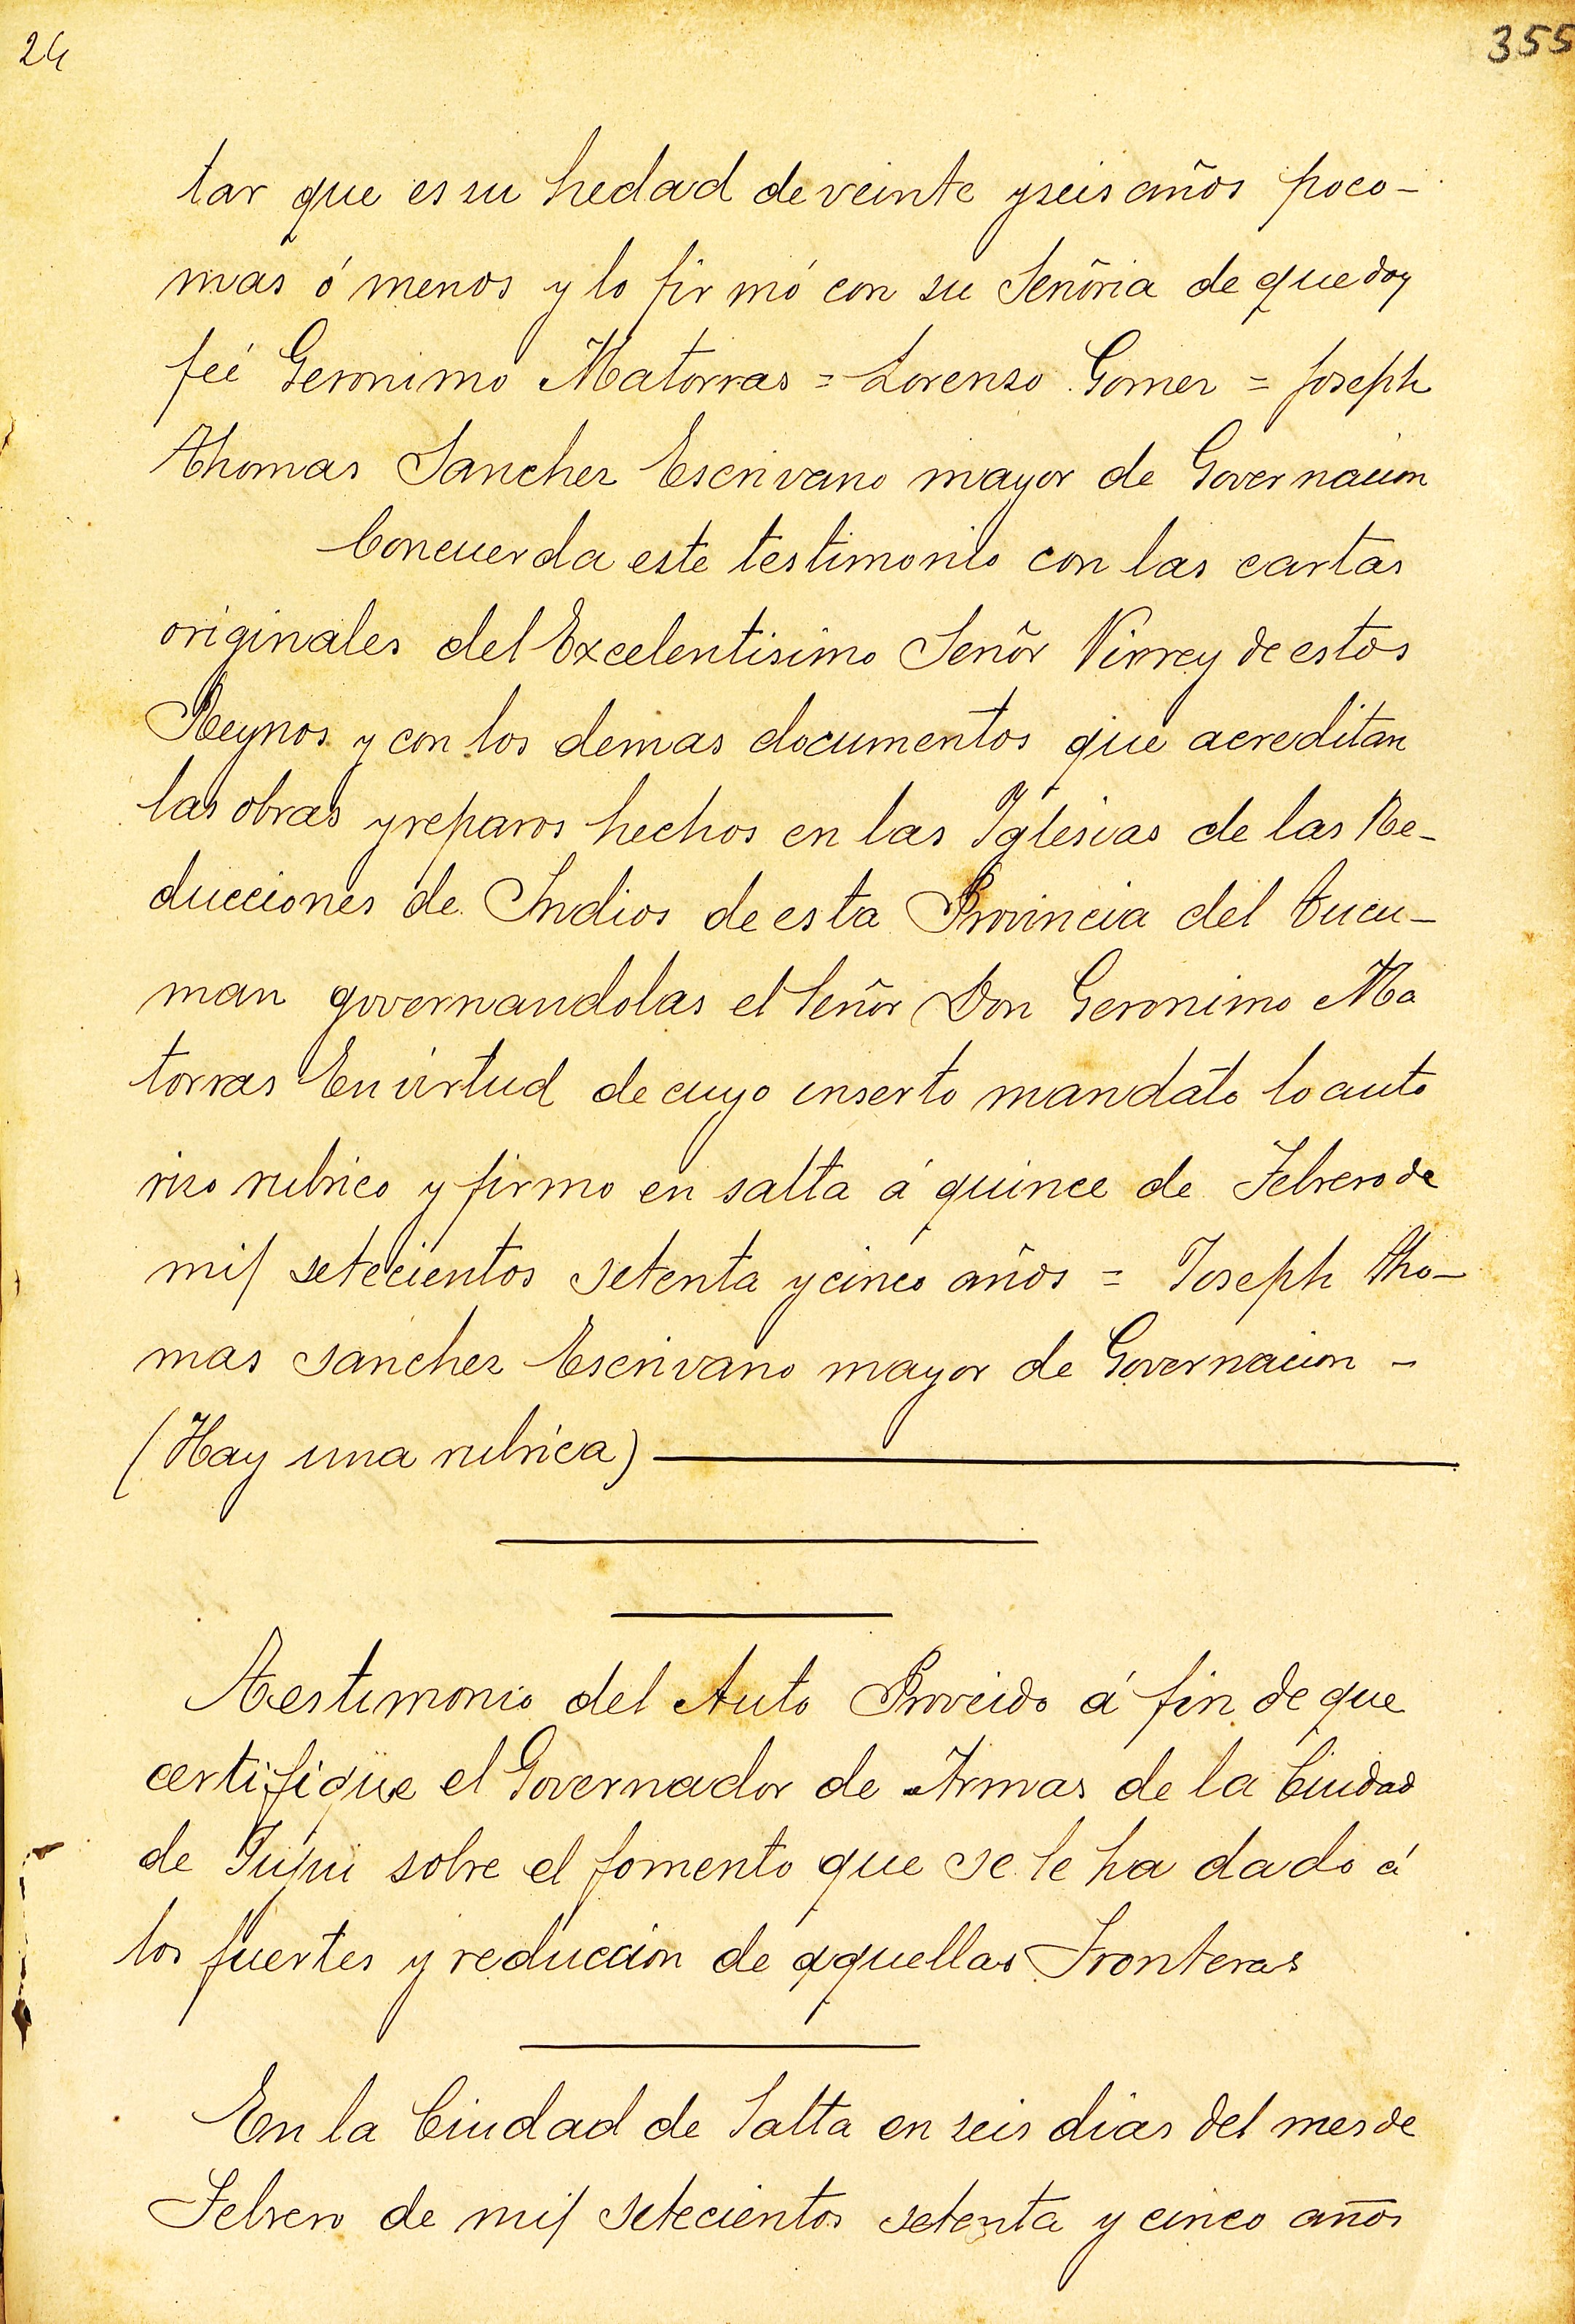 24
355
tar que es su hedad de veinte y seis años poco-
mas ó menos y lo firmó con su Señoria de que doy
feé Geronimo Matorras = Lorenzo Gomez = Joseph
Thomas Sanchez Escrivano mayor de Governacion
Concuerda este testimonio con las cartas
originales del Excelentisimo Señor Virrey de estos
Reynos y con los demas documentos que acreditan
las obras y reparos hechos en las Iglesias de las Re-
ducciones de Indios de esta Provincia del tucu-
man governandolas el Señor Don Geronimo Ma
torras En virtud de cuyo inserto mandato lo auto
rizo rubrico y firmo en salta á quince de Febrero de
mil setecientos setenta y cinco años = Joseph Tho-
mas sanchez Escrivano mayor de Governacion -
(Hay una rubrica)
Testimonio del Auto Proveido á fin de que
certifique el Governador de Armas de la Ciudad
de Jujui sobre el fomento que se le ha dado á
los fuertes y reduccion de aquellas Fronteras
En la Ciudad de Salta en seis dias del mes de
Febrero de mil setecientos setenta y cinco años